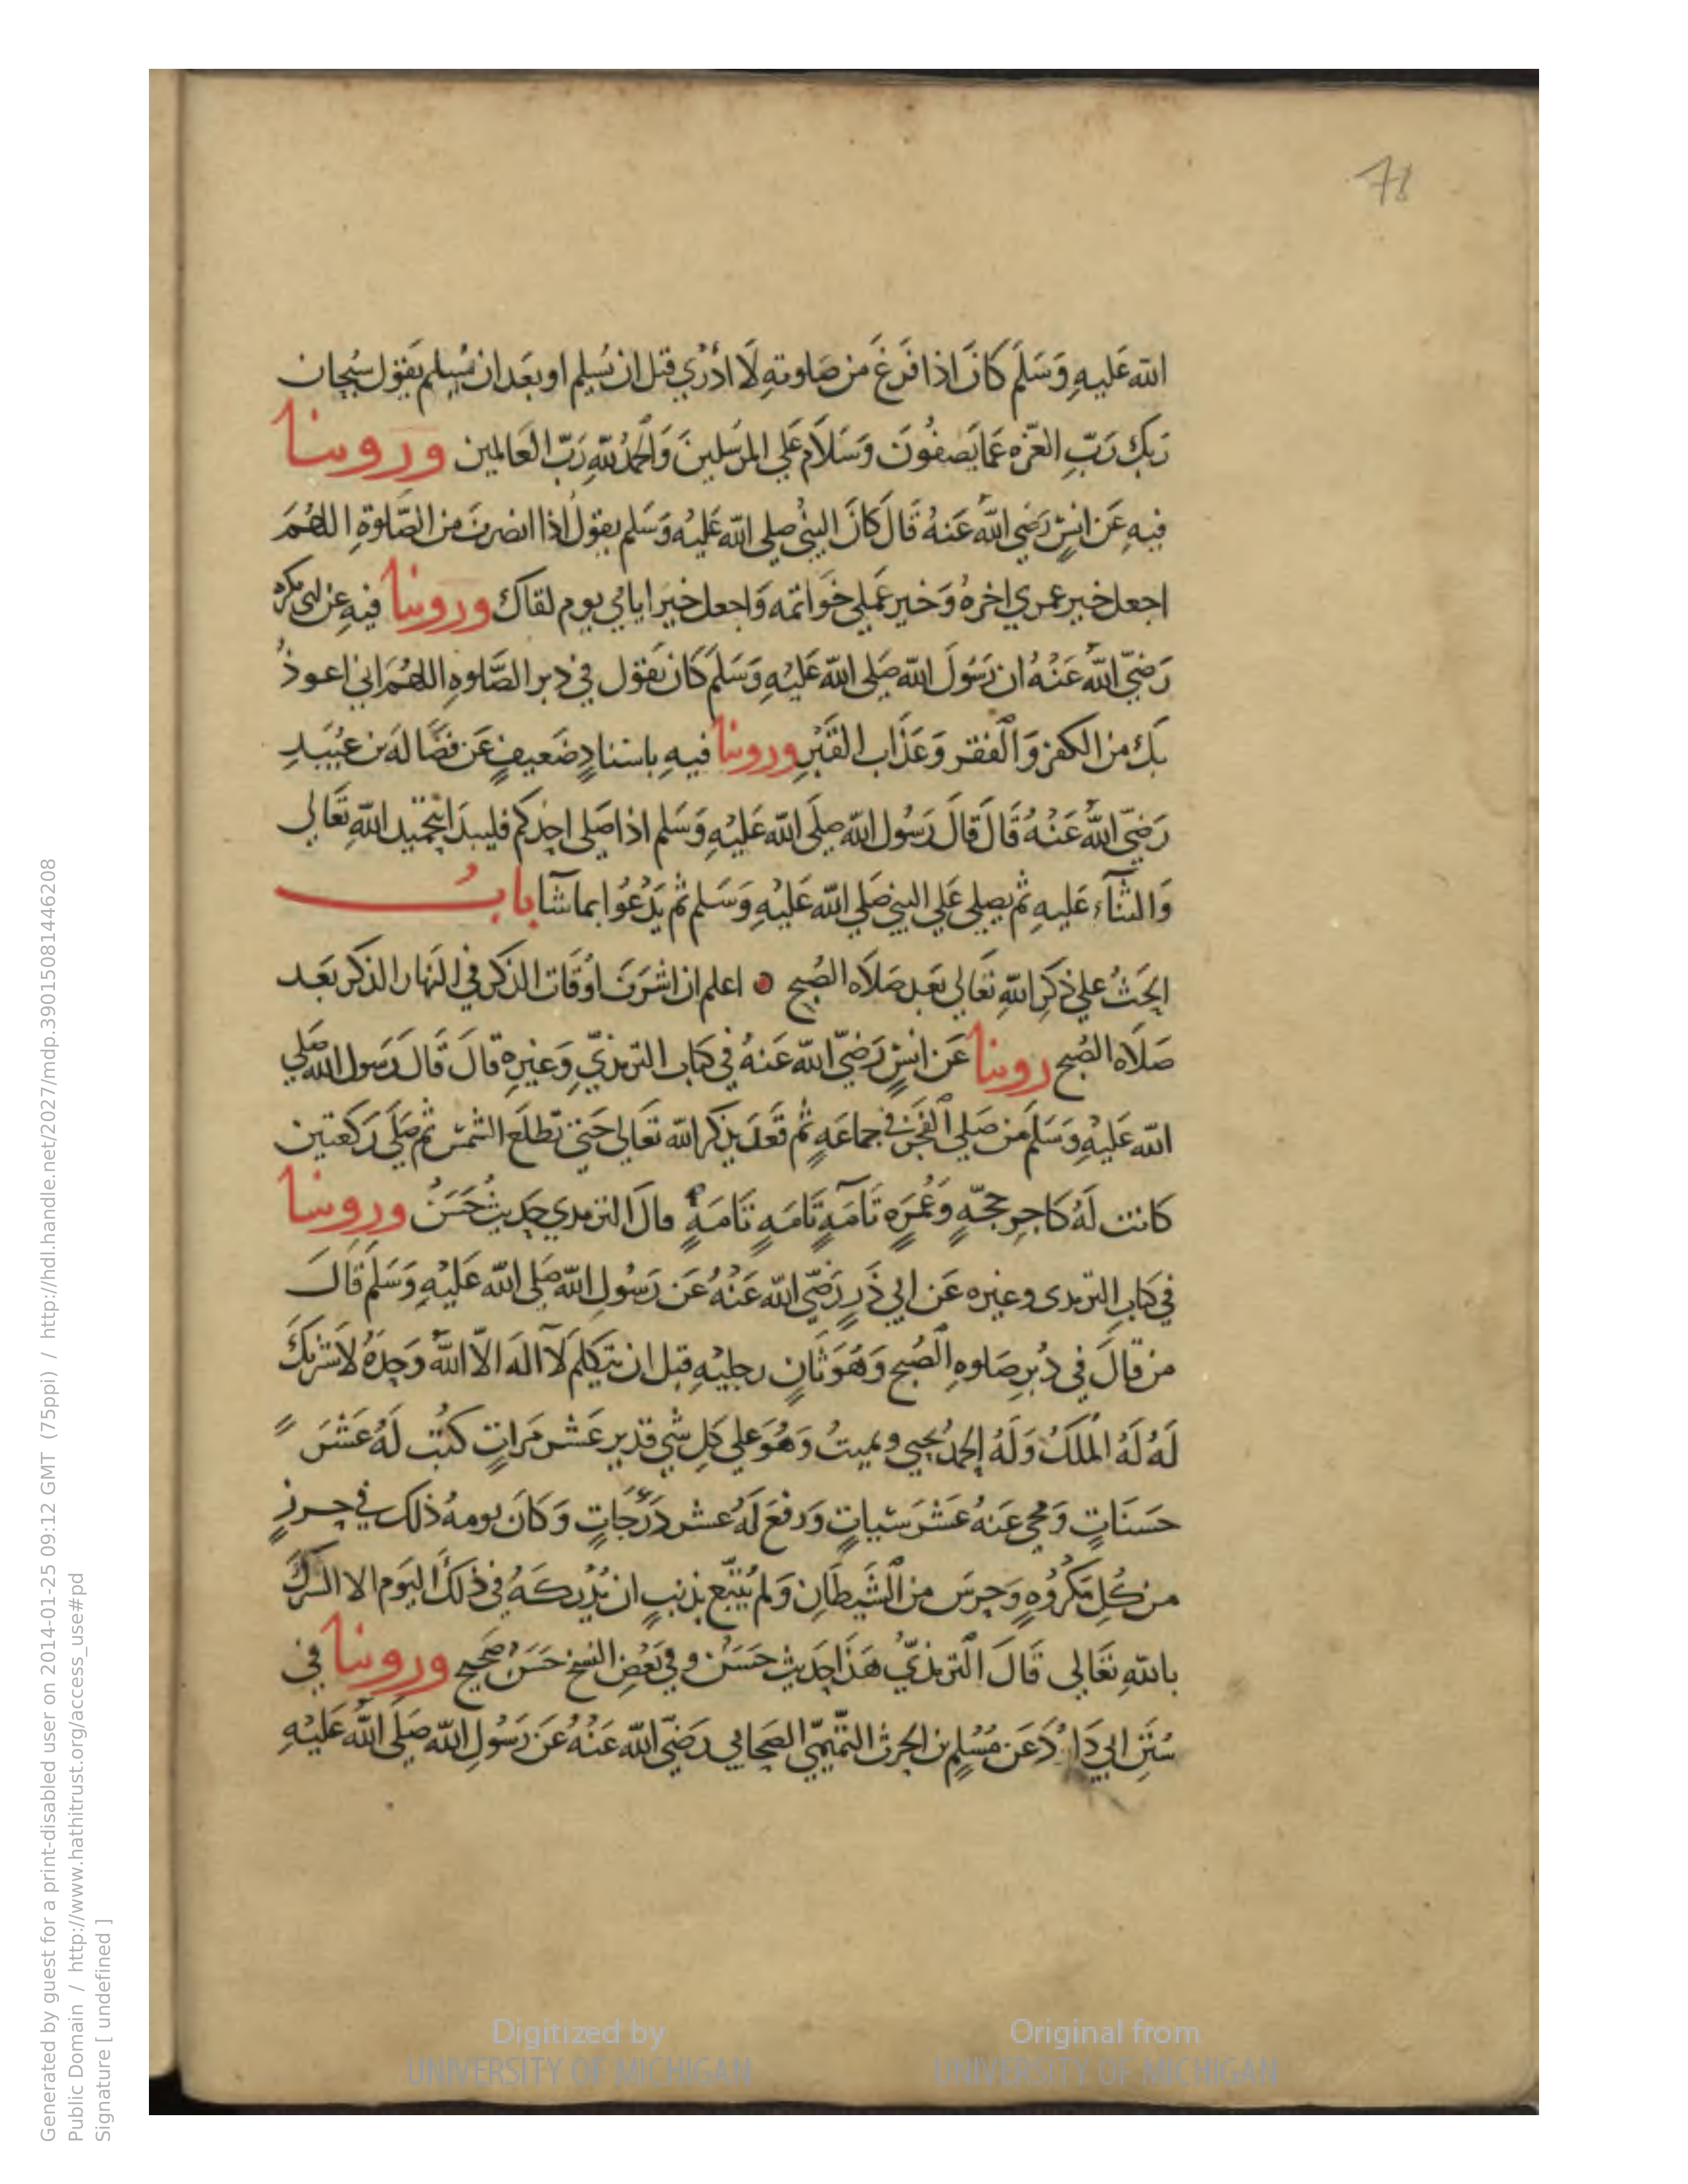 78
الله عَليهِ وَسَلَّم كَانَ اذا فَرغَ من صَلوتهِ لَا ادْرِي قبل ان يُسلِم او بعَد ان يُسِلم يَقول سُبحان
رَبك رَبِّ العزّه عَمّا يَصفُونَ وَسَلَام عَلي المرسَلينَ وَالحمدُ للهِ رَبّ العَالمين وروينا
فيهِ عَن انسٍ رَضي اللهُ عَنهُ قَال كَانَ النبيُ صلي الله عَليْه وَسَلم يقولُ اذا انصرفَ من الصَّلوةِ اللهُمَ
اجعل خير عمري اخرهُ وَخير عَملي خَواتمَه وَاجعل خَير ايامي يوم لقاك وروينا فيهِ عن ابي بكره
رَضيَ اللهُ عَنْهُ ان رَسُولَ الله صَلي الله عَليْهِ وَسَلَّم كَان يَقول في دبر الصَّلوهِ اللهُمَ اني اعوذُ
بكَ من الكفر وَالفقر وَعَذَاب القَبْرِ وروينا فيهِ باسنادٍ ضَعيفٍ عَن فضَالهَ بن عبُيَدِ
رَضيَ اللهُ عَنْهُ قَالَ قالَ رَسُول الله صلَي الله عَليْهِ وَسَلم اذا صَلي احدكم فليبدَا بتحميد اللهِ تَعَالي
وَالثنآءِ عَليهِ ثم يصلي عَلي النبي صَلي الله عَليْهِ وَسَلم ثم يَدْعُوا بما شآ بابُ
الحَثُ علي ذكرِ اللهِ تَعَالي بَعَد صَلاه الصُبح اعلم ان اشرَفَ اوْقَات الذكر في النهار الذكر بَعَد
صَلَاه الصُبح روينا عَن انسٍ رَضيَ الله عَنهُ في كتاب الترمذيِ وَغيرِه قالَ قَالَ رَسول الله صَلي
الله عَليْهِ وَسَلم من صَلي الفَجَر في جماعَهٍ ثم قَعَدَ يذكر الله تعَالي حَتي تطلعَ الشمس ثم صَلَي رَكعَتين
كانت لَهُ كاجرِ حجّهٍ وَعُمرَهٍ تَامَّهٍ تَامَهٍ تَامَهٍ قالَ الترمدي حَديث حَسَنُ وروينا
في كتابِ الترمدى وغيره عَن ابي ذَرٍ رَضيَ الله عَنْهُ عَن رَسُولِ الله صَلي الله عَليْهِ وَسَلم قَالَ
من قالَ في دُبرِ صَلوهِ الصُبح وَهوَ ثَانٍ رجليْهِ قبل ان يتكلم لَا اله الّا اللهُ وَحدَهُ لَا شريكَ
لَهُ لَهُ الملكُ وَلَهُ الحمدُ يحيي ويميتُ وَهُوَ علي كل شيٍ قدير عَشر مَراتٍ كتُب لَهُ عَشَر
حَسَناتٍ وَمحي عَنهُ عَشَر سَياتٍ وَرفعَ لهُ عشر دَرَجَاتٍ وَكانَ يومهُ ذلك في حرزٍ
من كُلِ مَكرُوهٍ وَحرسَ من الشَيطَانِ وَلم يُتبَع بذنبٍ ان يُدْركهُ في ذلكَ اليَوم الا الشركَ
باللهِ تعَالي قَالَ الترمذيّ هَذَا حَديث حَسَن وفي بَعضِ النسخ حَسَن صَحيح وروينا في
سُنَنِ ابي دَاوُدَ عَن مُسْلم بن الحرث التميميّ الصَحابي رَضيَ الله عَنْهُ عَن رَسُولِ الله صَلَي اللهُ عَليْهِ
Digitized by
UNIVERSITY OF MICHIGAN
Original from
UNIVERSITY OF MICHIGAN
Generated by guest for a print-disabled user on 2014-01-25 09:12 GMT (75ppi) / http://hdl.handle.net/2027/mdp.39015081446208
Public Domain / http://www.hathitrust.org/access_use#pd
Signature [ undefined ]